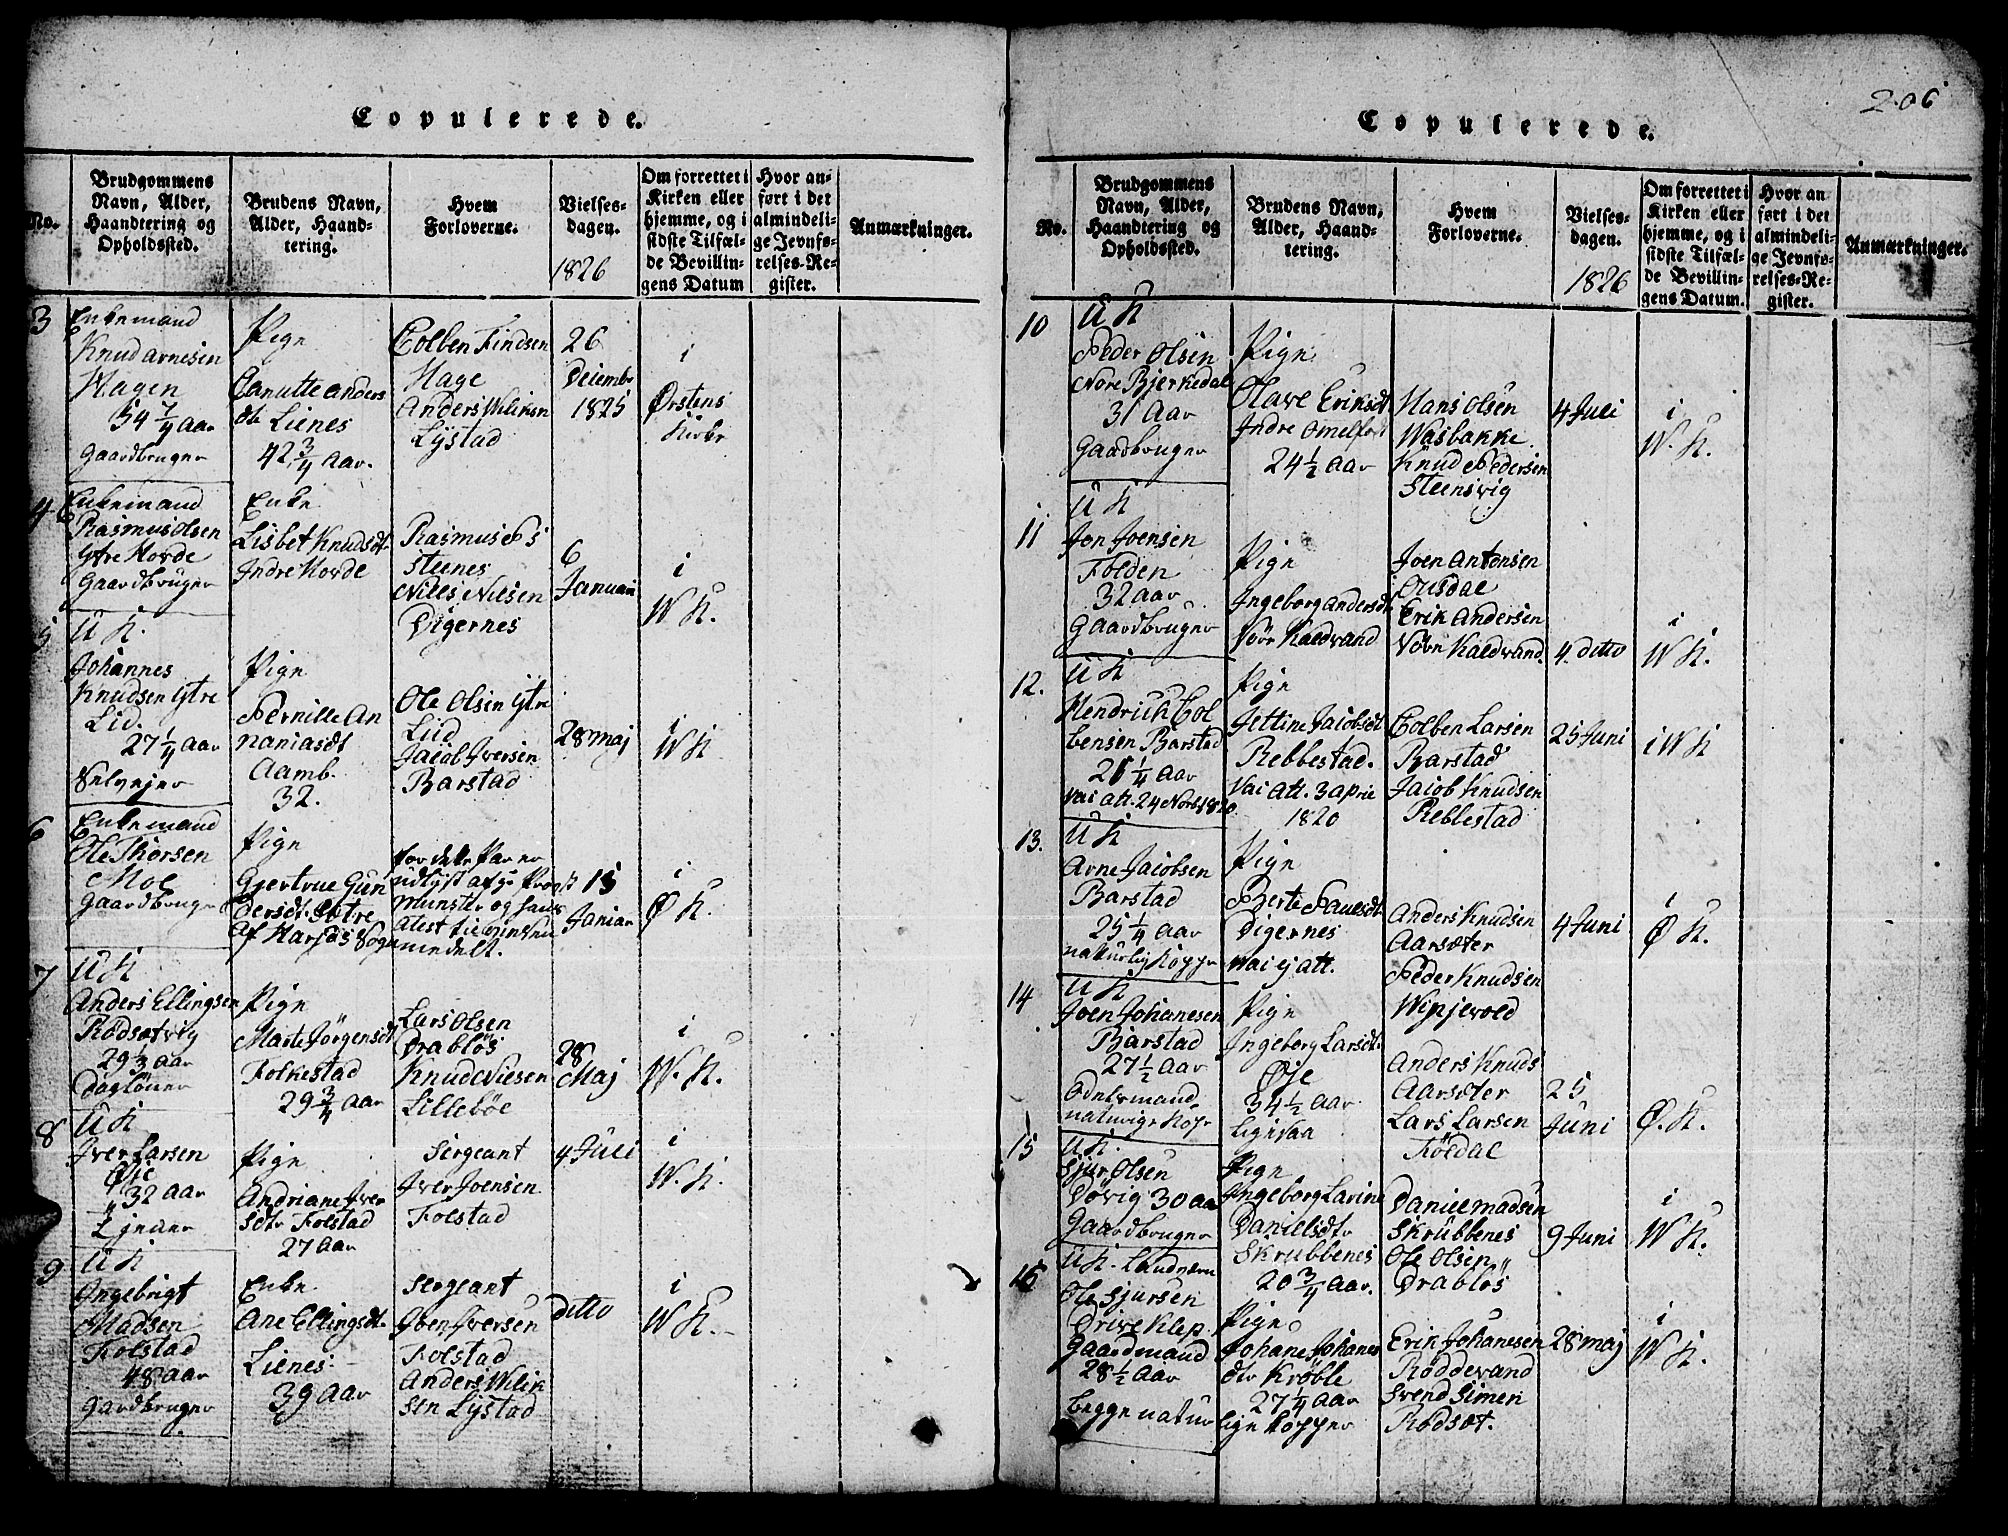 Copulerede.
No.
Brudgommens
Navn, Alder,
Haandtering og
Opholdssted.
Brudens Navn,
Alder, Haand-
tering.
Hvem
Forloverne.
Vielses-
dagen.
1826
Om forrettet i
Kirken eller
hjemme, og i
sidste Tilfæl-
de Bevillin-
gens Datum
Hvor an-
ført i det
almindeli-
ge Jevnfø-
relses-Re-
gister.
Anmærkninger.
3
Enkemand
Knud Arnesen
Hagen
54 1/4 Aar
Gaardbruger
Pige
Aanutte Anders
dtr Lienes
42 3/4 Aar.
Colben Findsen
Hage
Anders Wiliksen
Lystad
26
Deiembr
1825
i
Ørstens
Kirke
4
Enkemand
Rasmus Olsen
Ytre Horde
Gaardbruger
Enke
Lisbet Knudsdt
Indre Horde
Rasmus
Steenes
Nills Nilsen
Digernes
6
Januari
i
W K.
5
U K.
Johannes
Knudsen Ytre
Lid.
27 1/4 Aar
Selvejer
Pige
Pernille An
naniasdt
Aamb.
32.
Ole Olsen Ytre
Lid
Jacob Iversen
Barstad
28 Maj
i
W K
6
Enkemand
Ole Thorsen
Moe
Gaardbruger
Pige
Gjertrue Gun
dersdt Sætre
af Harjds Sogn
for dette Par er
udlyst af Hr Provst
Munster og hans
atest til
meddelt.
15
Janiar
i
Ø K.
7
U K
Anders Ellingsen
Rödsætvig
29 1/3 Aar
Daglöner
Pige
Marte Jörgensdt
Folkestad
29 3/4 Aar
Lars Olsen
Drablös
Knud Nielsen
Lilleböe
28
Maj
i
W. K.
8
U K
Iver Larsen
Øie
32 Aar
Pige
Andriane Iver
sdtr Folstad
27 Aar
Sergeant
Iver Joensen
Folstad
4 Juli
i
W. K.
9
U K
Ingebrigt
Madsen
Folstad
48 Aar
Gardbruger
Enke
Ane Ellingsdt.
Lienes
39 Aar
Sergeant
Iver Iversen
Folstad
Anders Wilik
sen Lystad
ditto
i
W K.
206
Copulerede.
No.
Brudgommens
Navn, Alder,
Haandtering og
Opholdssted.
Brudens Navn,
Alder, Haand-
tering.
Hvem
Forloverne.
Vielses-
dagen.
1826
Om forrettet i
Kirken eller
hjemme, og i
sidste Tilfæl-
de Bevillin-
gens Datum.
Hvor an
ført i det
almindeli-
ge Jevnfø-
relses-Re-
gister.
Anmærkninger.
10
U K
Peder Olsen
Nore Bjerkedal
31 Aar
Gaardbruger
Pige
Olave Eriksdt
Indre Omelfot
24 1/2 Aar
Hans Olsen
Wasbakke
Knud Pedersen
Steensvig
4 Juli
i
W. K.
11
U K
Jon Joensen
Folden
32 Aar
Gaardbruger
Pige
Ingeborg Andersdt
Nörr Kaldvand
Joen Antonsen
Ousdal
Erik Andersen
Nörr Kaldvand.
4. ditto
i
W K.
12.
U K
Hendrich Col
bensen Barstad
26 1/4 Aar
vai att. 24 Novb 1820
Pige
Jettine Jacobsdt
Rebbestad.
vai att. 3 April
1820
Colben Larsen
Barstad
Jacob Knudsen
Reblestad
25 Juni
i W K
13.
U K
Arne Jacobsen
Barstad
25 1/4 Aar
naturlig Kopper
Pige
Berte Paulsdt
Digernes
vai ej att.
Anders Knudsen
Aarsæter
Peder Knudsen
Wipjevold
4 Juni
i
Ø K.
14
U K
Joen Johanesen
Barstad
27 1/2 Aar
Odelsmand
naturlige Kopr
Pige
Ingeborg Larsdt.
Øje
34 1/2 Aar.
ligevaa
Anders Knuds
Aarsæter
Lars Larsen
Földal
25
Juni
Ø. K.
15
U K.
Sjur Olsen
Dövig 30 Aar
Gaardbruger
Pige
Ingeborg Lavine
Danielsdtr
Skrubbenes
20 3/4 Aar.
Daniel Madsen
Skrubbenes
Ole Olsen
Drablös
9 Juni
i
W K.
16
U K.
Ole Sjursen
Driveklep
Gaardmand
28 1/2 Aar
begge natur
Pige
Johane Johanes
dtr Kröble
27 1/4 Aar
lige Kopper
Erik Johanesen
Röddevand
Svend Simen
Rödsæt.
28 Maj
i
W K.